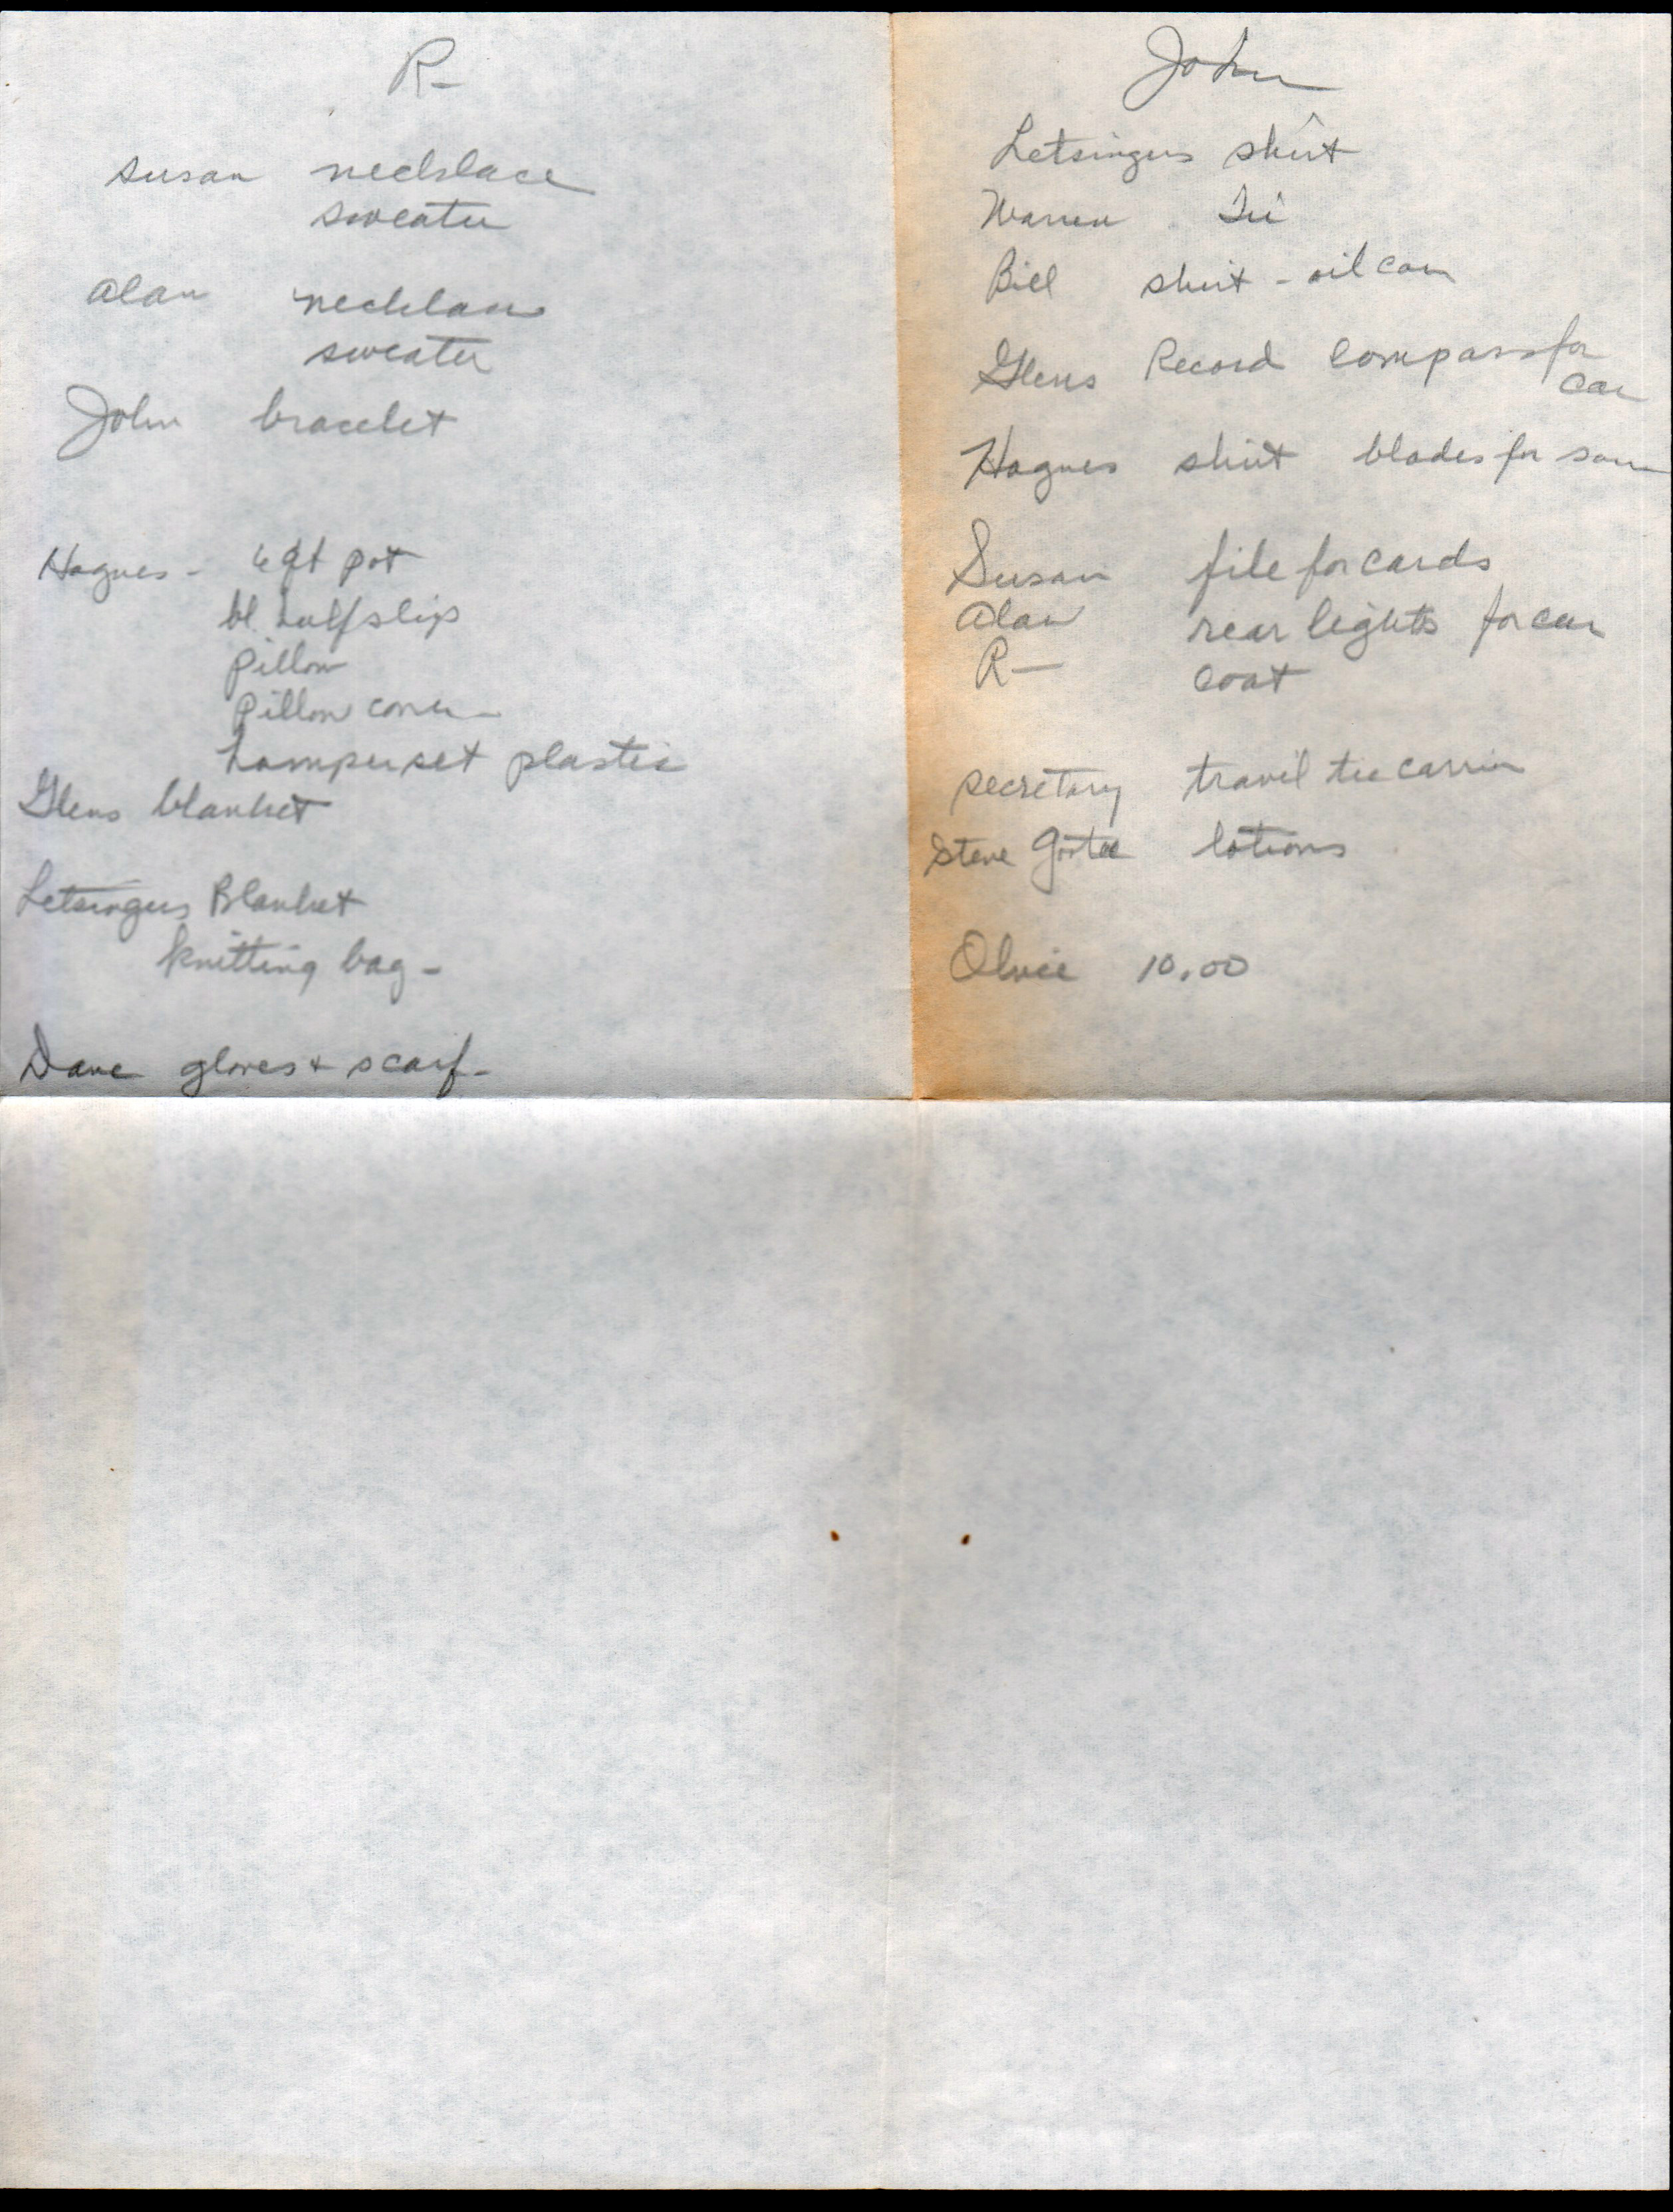 R-
Susan necklace
sweater
Alan necklace
sweater
John bracelet
Hagues - 6 qt pot
bl. half slip
pillow
pillow cover
hamper set plastic
Glens blanket
Letsingers Blanket
knitting bag -
Dave gloves + scarf -
John
Letsingers shirt
Warren Tie
Bill shirt - oil can
Glens Record compass for
car
Hagues shirt blades for saw
Susan file for cards
Alan rear lights for car
R- coat
secretary travel tie carrier
Steve lotions
10.00